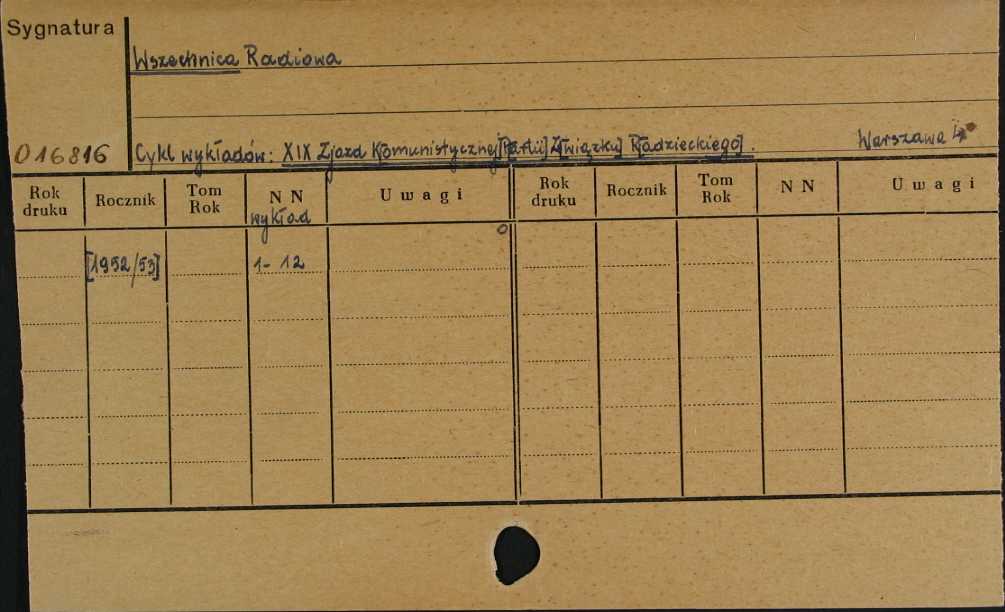 Sygnatura
Wszechnica Radiowa
016816
Cykl wykładów: XIX Zjazd K[omunistycznej] P[artii] Z[wiązku] R[adzieckiego].
Warszawa
Rok druku Rocznik Tom Rok NN Uwagi Rok druku Rocznik Tom Rok NN Uwagi
wykład
[1952/53] 1-12